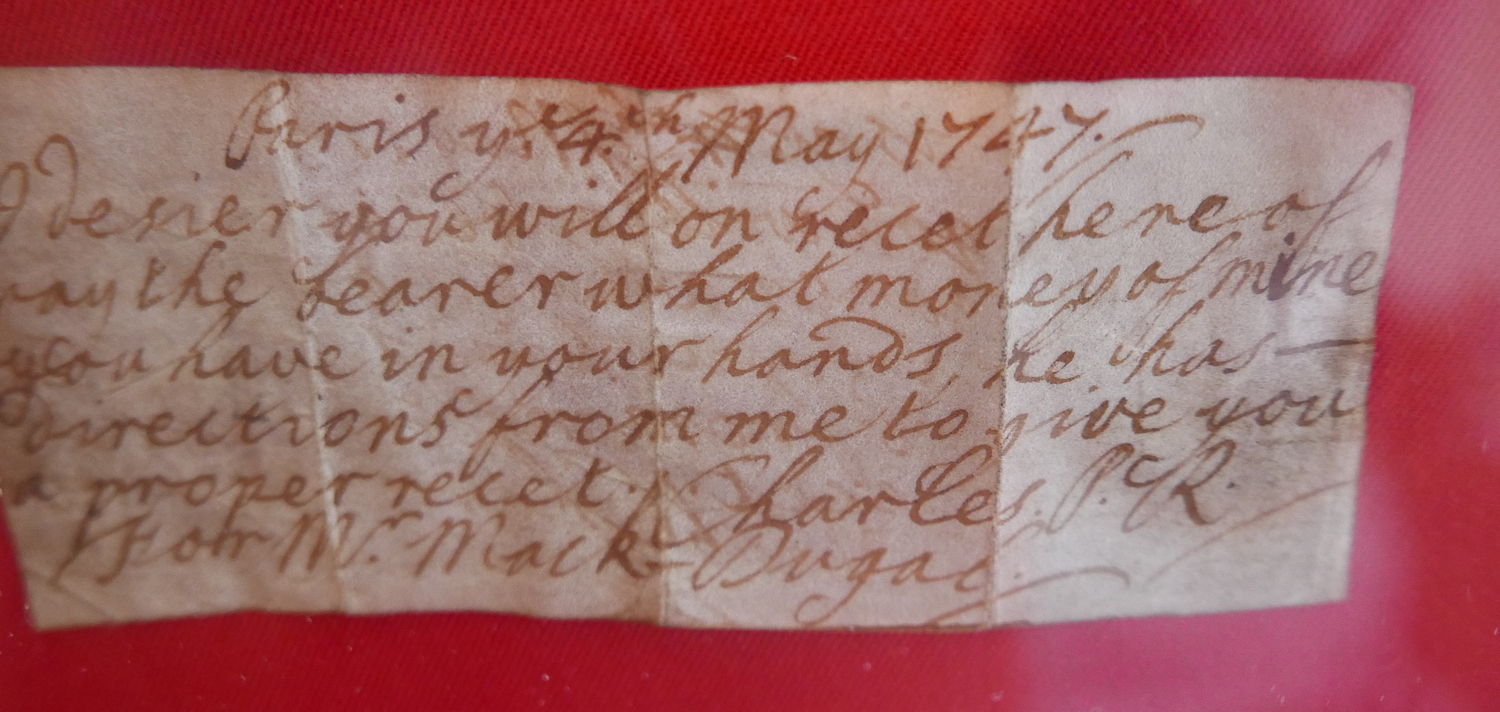 Paris ye. 4.th May 1747.
I desier you will on recet here of
pay the bearer what money of mine
you have in your hands, he has —
directions from me to give you
a proper recet. Charles. P. R.
For Mr. Mack-Dugal.